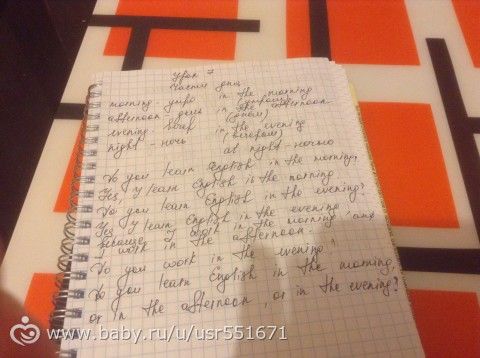 Урок 7
Части дня
morning утро in the morning (утром)
afternoon день in the afternoon (днём)
evening вечер in the evening (вечером)
night - ночь at night - ночью
Do you learn English in the morning?
Yes, I learn English in the morning
Do you learn English in the evening?
Yes, I learn English in the evening
because I work in the morning and
I work in the afternoon.
Do you work in the evening?
Do you learn English in the morning,
or in the afternoon, or in the evening?
www.baby.ru/u/usr551671